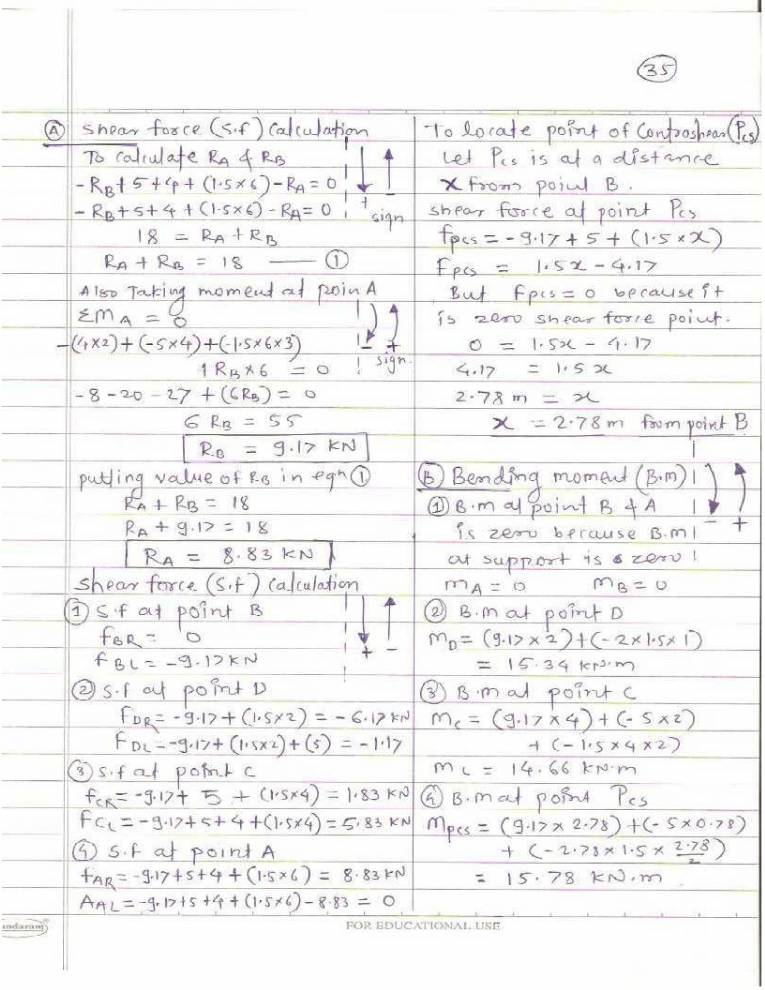 35
(A) Shear force (S.f) calculation
To calculate RA & RB
-RB+5+4+(1.5×6)-RA=0
-RB+5+4+(1.5×6)-RA=0
+ - sign
18 = RA+RB
RA+RB = 18 —— (1)
Also Taking moment at poin A
ΣMA = 0
-(4×2)+(-5×4)+(-1.5×6×3)
- + sign.
1RB×6 = 0
-8-20-27+(6RB)=0
6RB = 55
RB = 9.17 KN
putting value of RB in eqn (1)
RA+RB = 18
RA+9.17=18
RA = 8.83 KN
Shear force (S.f) calculation
(1) S.f at point B
fBR = 0
+ -
fBL = -9.17KN
(2) S.f at point D
FDR = -9.17+(1.5×2) = -6.17 KN
FDL=-9.17+(1.5×2)+(5) = -1.17
(3) S.f at point C
fCR=-9.17+5+(1.5×4)=1.83 KN
FCL=-9.17+5+4+(1.5×4)=5.83 KN
(4) S.f at point A
fAR=-9.17+5+4+(1.5×6) = 8.83KN
AAL=-9.17+5+4+(1.5×6)-8.83 = 0
To locate point of Contrashear (Pcs)
Let Pcs is at a distance
x from point B.
shear force at point Pcs
fpcs = -9.17+5+(1.5×x)
Fpcs = 1.5x-4.17
But Fpcs=0 because it
is zero shear force point.
0 = 1.5x-4.17
4.17 = 1.5x
2.78 m = x
x = 2.78 m from point B
(B) Bending moment (B.M)
(1) B.m at point B & A
- +
is zero because B.M
at support is zero
mA=0 mB=0
(2) B.m at point D
MD=(9.17×2)+(-2×1.5×1)
= 15.34 KN.m
(3) B.m at point C
Mc=(9.17×4)+(-5×2)
+(-1.5×4×2)
Mc = 14.66 KN.m
(4) B.m at point Pcs
Mpcs=(9.17×2.78)+(-5×0.78)
+(-2.78×1.5×2.78/2)
= 15.78 KN.m
FOR EDUCATIONAL USE